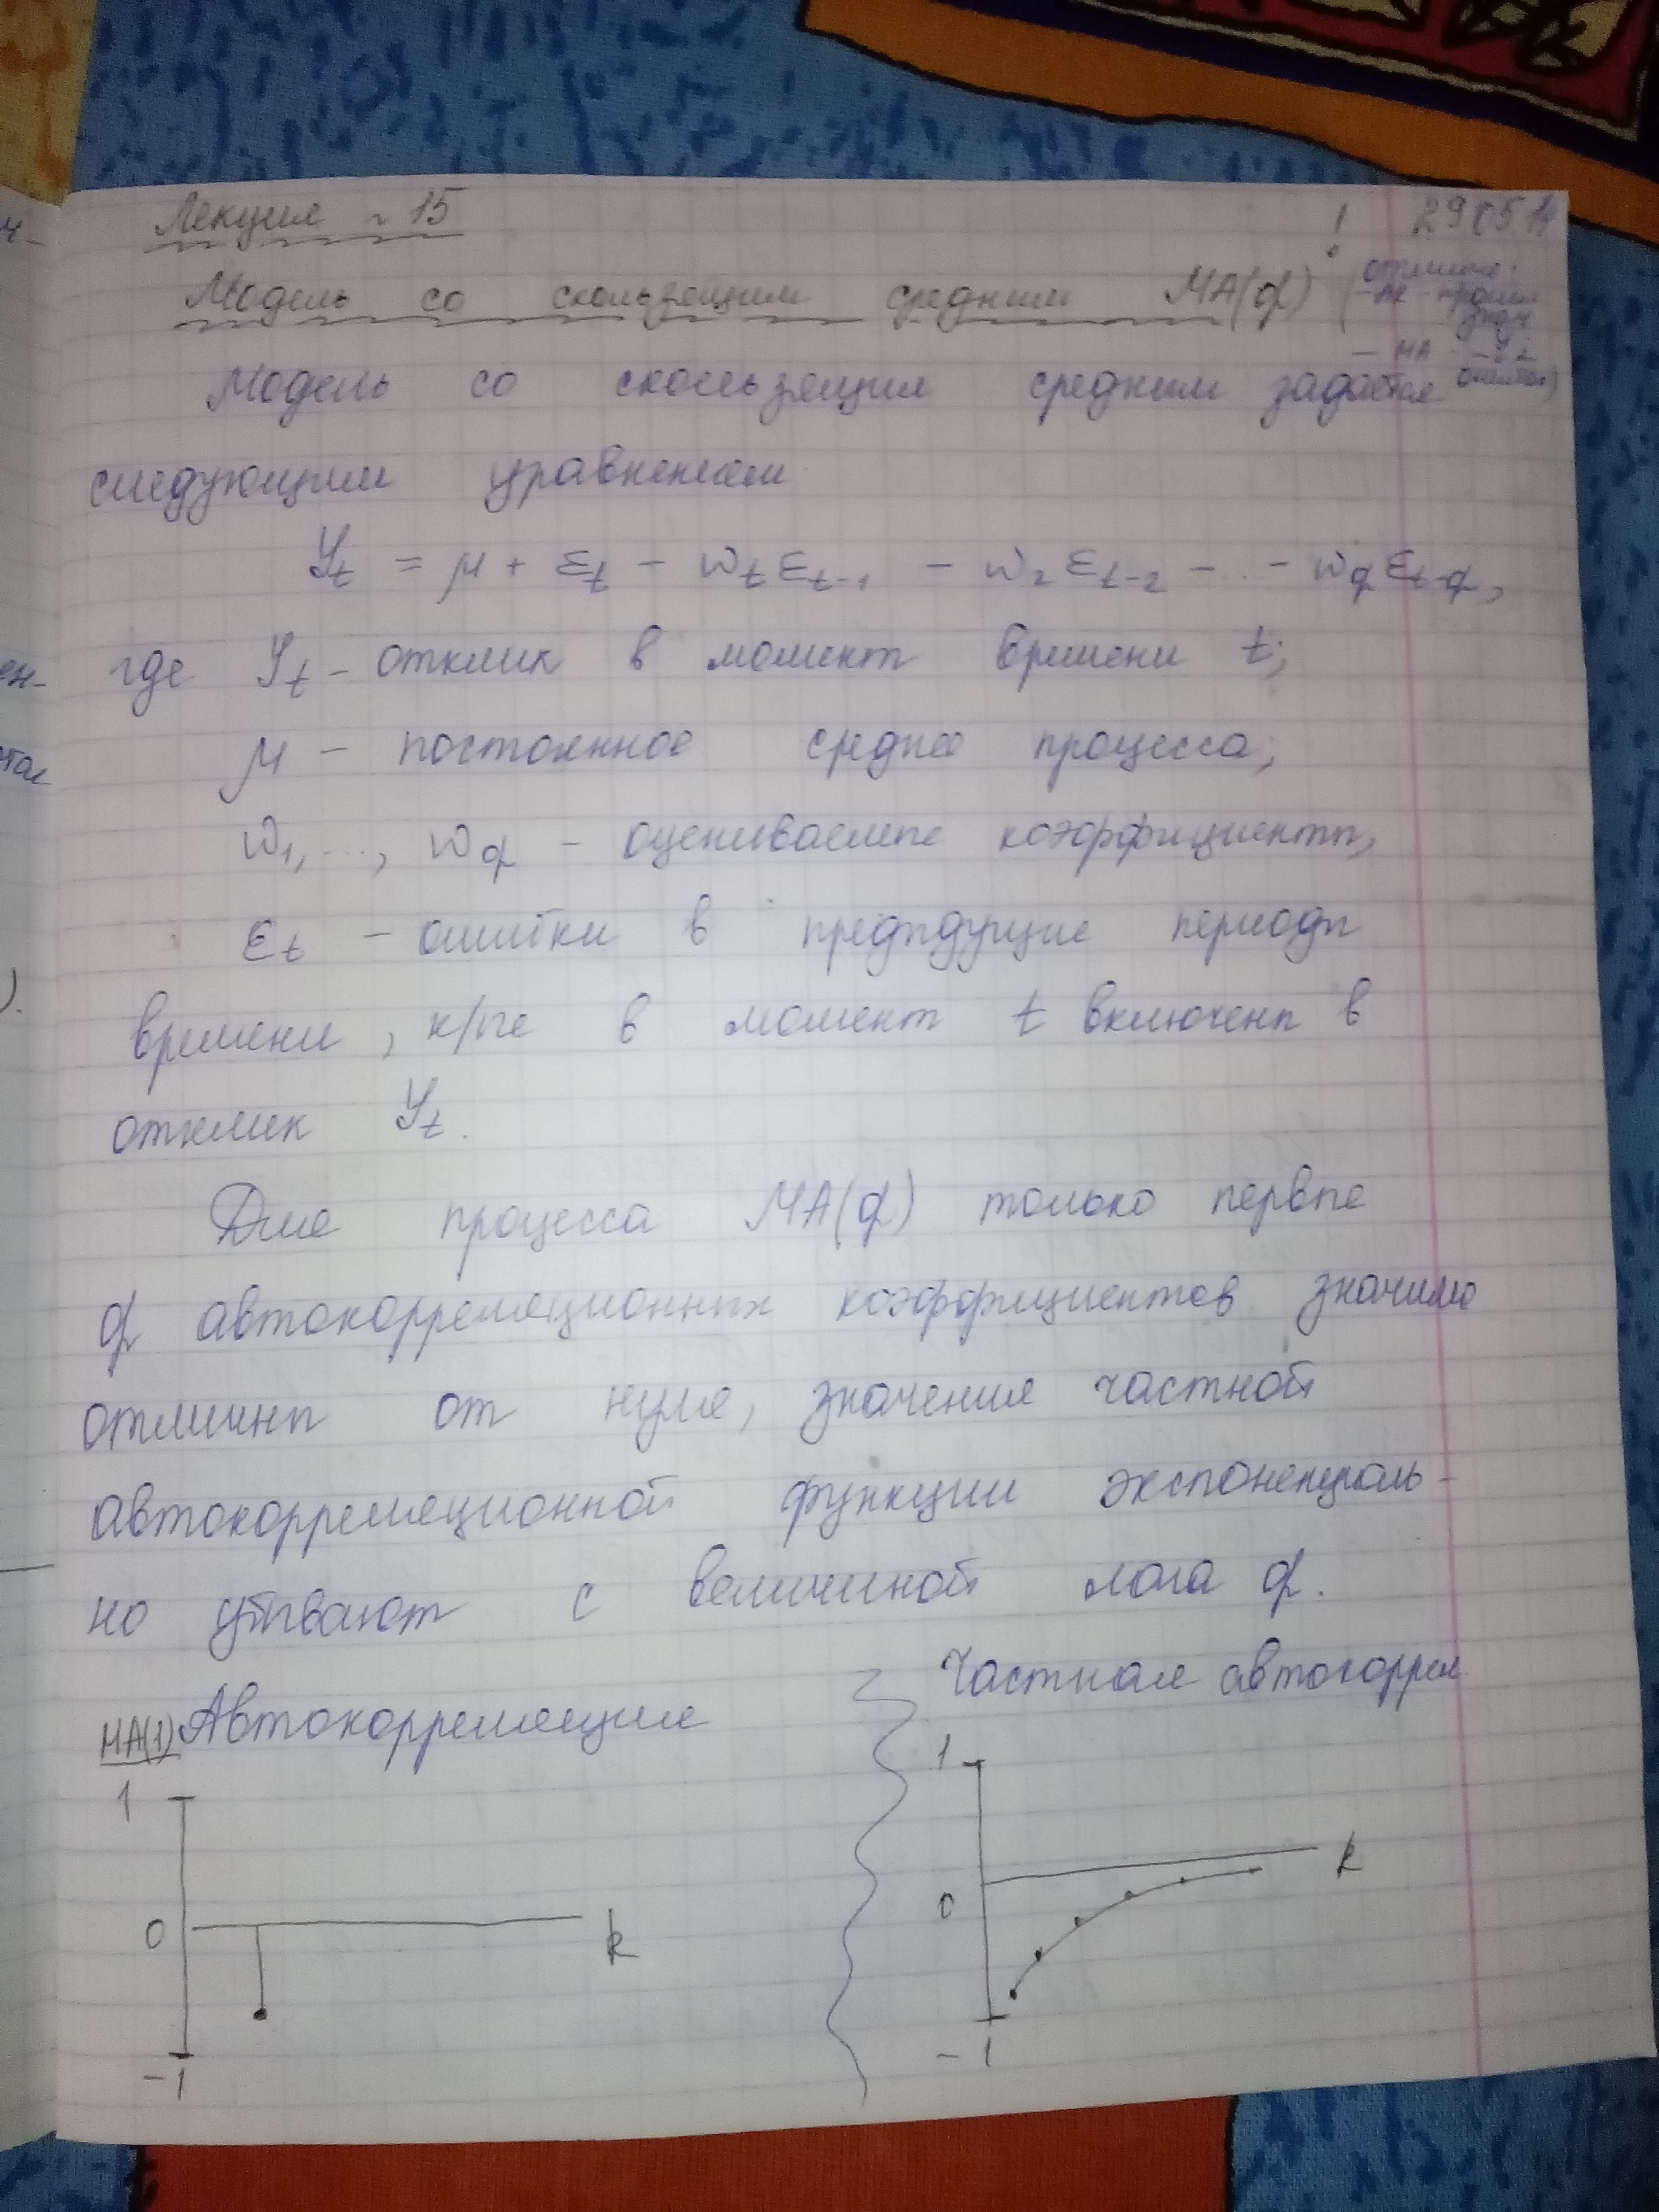 Лекция ~ 15
! 29 05 14
Модель со скользящим средним MA(q)
(отличие:
- AR - прошл
знач
- MA -
ошибок)
Модель со скользящим средним задаётся
следующим уравнением
Yt = μ + εt - wtεt-1 - w2εt-2 - ... - wqεt-q,
где Yt - отклик в момент времени t;
μ - постоянное среднее процесса;
w1, ..., wq - оцениваемые коэффициенты,
εt - ошибки в предыдущие периоды
времени, к/ые в момент t включены в
отклик Yt.
Для процесса MA(q) только первые
q автокорреляционных коэффициентов значимо
отличны от нуля, значения частной
автокорреляционной функции экспоненциаль-
но убывают с величиной лага q.
MA(1) Автокорреляция
Частная автокоррел
1
0
k
-1
1
0
k
-1